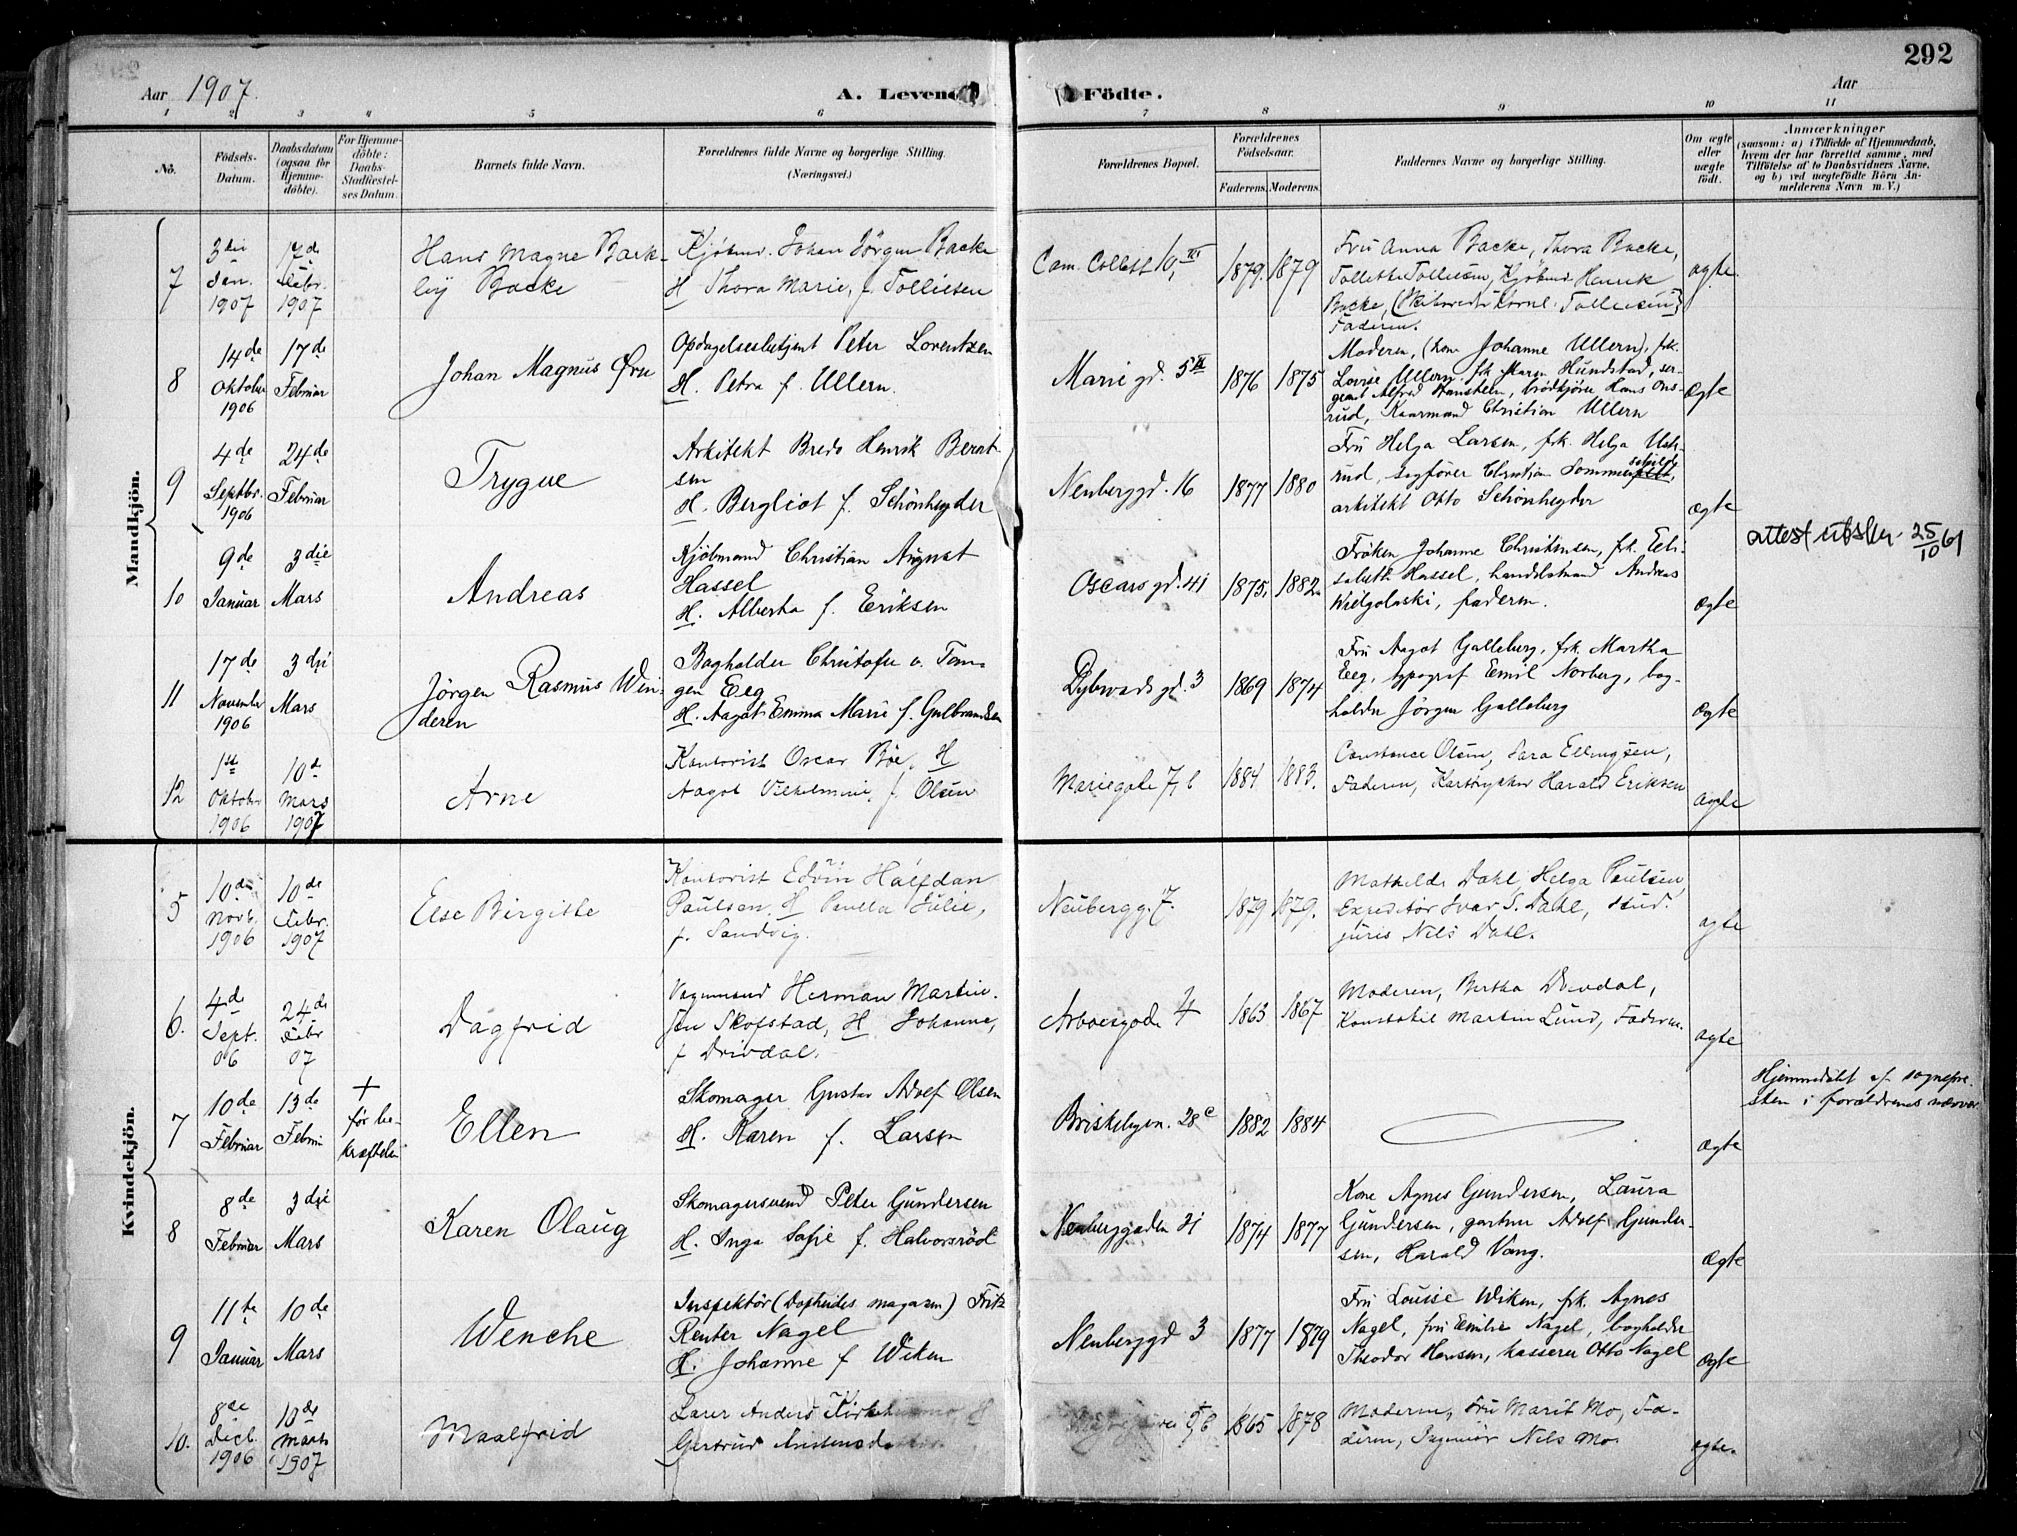 292
Aar 1907.
A. Levende Födte.
Aar
1 2 3 4 5 6 7 8 9 10 11
No.
Födsels-Datum.
Daabsdatum (ogsaa for Hjemme-döbte).
For Hjemme-döbte: Daabs-Stadfæstel-ses Datum.
Barnets fulde Navn.
Forældrenes fulde Navne og borgerlige Stilling. (Næringsvei.)
Forældrenes Bopæl.
Forældrenes Födselsaar.
Faderens. Moderens.
Faddernes Navne og borgerlige Stilling.
Om ægte eller uægte födt.
Anmærkninger
(saasom: a) i Tilfælde af Hjemmedaab, hvem der har forrettet samme, med Tilföielse af to Daabsvidners Navne, og b) ved uægtefödte Börn An-melderens Navn m. V.)
Mandkjön.
7
3die Jan. 1907
17de Febr. 1907
Hans Magne Back-
ley Backe
Kjöbmd. Johan Jörgen Backe
H Thora Marie, f. Tollefsen
Cam. Collett 10, III
1879. 1879
Fru Anna Backe, Thora Backe,
Kjöbmd Henrik
Backe,
Faderen.
ægte.
8
14de Oktober 1906
17de Februar
Johan Magnus Ørn
Opdagelsesbetjent Peter Lorentzen
H. Petra f. Ullern.
Marie gd. 5 II
1876 1875
Moderen, Johanne Ullern, frk.
Lovise Ullern, frk Maren Hundstad, ser-
geant Alfred brödkjörer Hans Ons-
rud, Christian Ullern
ægte
9
4de Septbr. 1906
24de Februar
Trygve
Arkitekt Bredo Henrik Bernt-
sen
H. Bergliot f. Schönheyder
Neuberggd. 16
1877 1880
Fru Helga Larsen, frk. Helga
rud, sagförer Christian Sommerschildt,
arkitekt Otto Schönheyder
ægte
attest utsten. 25/10 61
10
9de Januar
3die Mars
Andreas
Kjöbmand Christian August
Hassel
H. Alberta f. Eriksen
Oscars gd. 41
1875. 1882.
Fröken Johanne Christensen, frk. Eli-
sabeth Hassel, handelsmand Andreas
Wielgolaski, faderen.
ægte
11
17de November 1906
3die Mars
Jörgen Rasmus Win-
deren
Bogholder Christofer v. Tan-
gen Eeg
H. Aagot Emma Marie f. Gulbrandsen
Dybwads gd. 3
1869 1874
Fru Aagot Galleberg, frk. Martha
Eeg, typograf Emil Norberg, bog-
holder Jörgen Galleberg
ægte
12
1ste Oktober 1906
10de Mars 1907
Arne
Kontorist Oscar Böe, H
Aagot Vilhelmine, f. Olsen
Mariegate 7, b
1884 1883.
Constance Olsen, Sara Ellingsen,
Faderen, Harald Eriksen
ægte
Kvindekjön.
5
10de Novb. 1906
10de Febr. 1907
Else Birgitte
Kontorist Edvin Halfdan
Paulsen, H Paulla Julie,
f. Sandvig.
Neubergg. 17.
1879 1879.
Mathilde Dahl, Helga Paulsen,
Expeditör Ivar S. Dahl, stud.
juris Nils Dahl.
ægte
6.
4de Sept. 06
24de Febr 07
Dagfrid
Vognmand Herman Martin.
Skofstad, H Johanne,
f Drivdal.
Arboesgade 4
1863 1867
Moderen, Bertha Drivdal,
Konstabel Martin Lund, Faderen.
ægte
7
10de Februar
13de Febru
+
før be-
kræftelsen
Ellen
Skomager Gustav Adolf Olsen
H. Karen f. Larsen
Briskebyvn. 28 c
1882 1884
ægte
Hjemmedöbt af sognepre-
sten i forældrenes nærvær
8
8de Februar
3die Mars
Karen Olaug
Skomagersvend Peter Gundersen
H. Inga Sofie f. Halvorsröd
Neuberggaden 21
1874 1877
Kone Agnes Gundersen, Laura
Gundersen, gartner Adolf Gunder-
sen, Harald Vang.
ægte
9
11te Januar
10de Mars
Wenche
Inspektör (Döpheides magasin) Fritz
Reuter Nagel
H. Johanne f Wiken
Neuberggd 3
1877 1879
Fru Louise Wiken, frk. Agnes
Nagel, fru Emilie Nagel, bogholder
Theodor Hansen, kasserer Otto Nagel
ægte
10.
8de Decb. 1906
10de Marts 1907
Maalfrid
Lærer Anders Kirkhusmo H
Gertrud
5 b
1865 1878
Moderen, Fru Marit Mo, Fa-
deren, Ingeniör Nils Mo.
ægte.